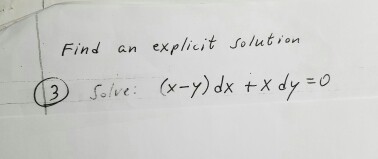 Find an explicit solution
3 Solve: (x-y) dx + x dy = 0